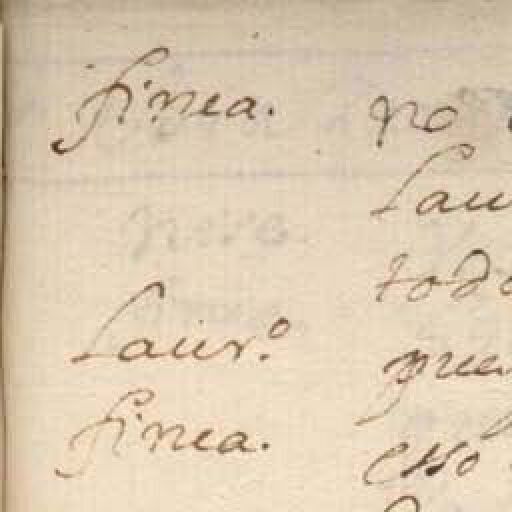 finea. no
Lau
todo
Laur.º pue
finea. esso